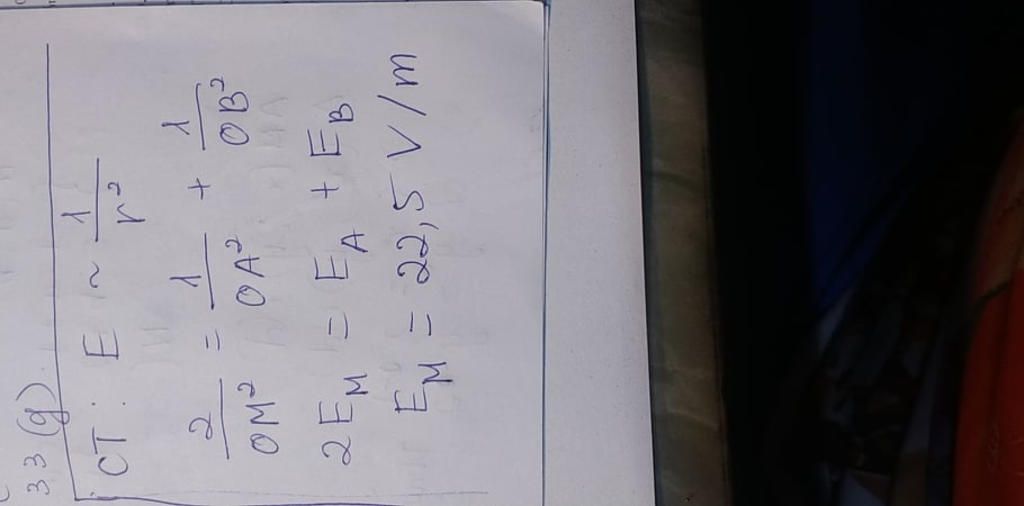 33 (g)
CT: E ~ 1/r²
2/OM² = 1/OA² + 1/OB²
2E_M = E_A + E_B
E_M = 22,5 V/m